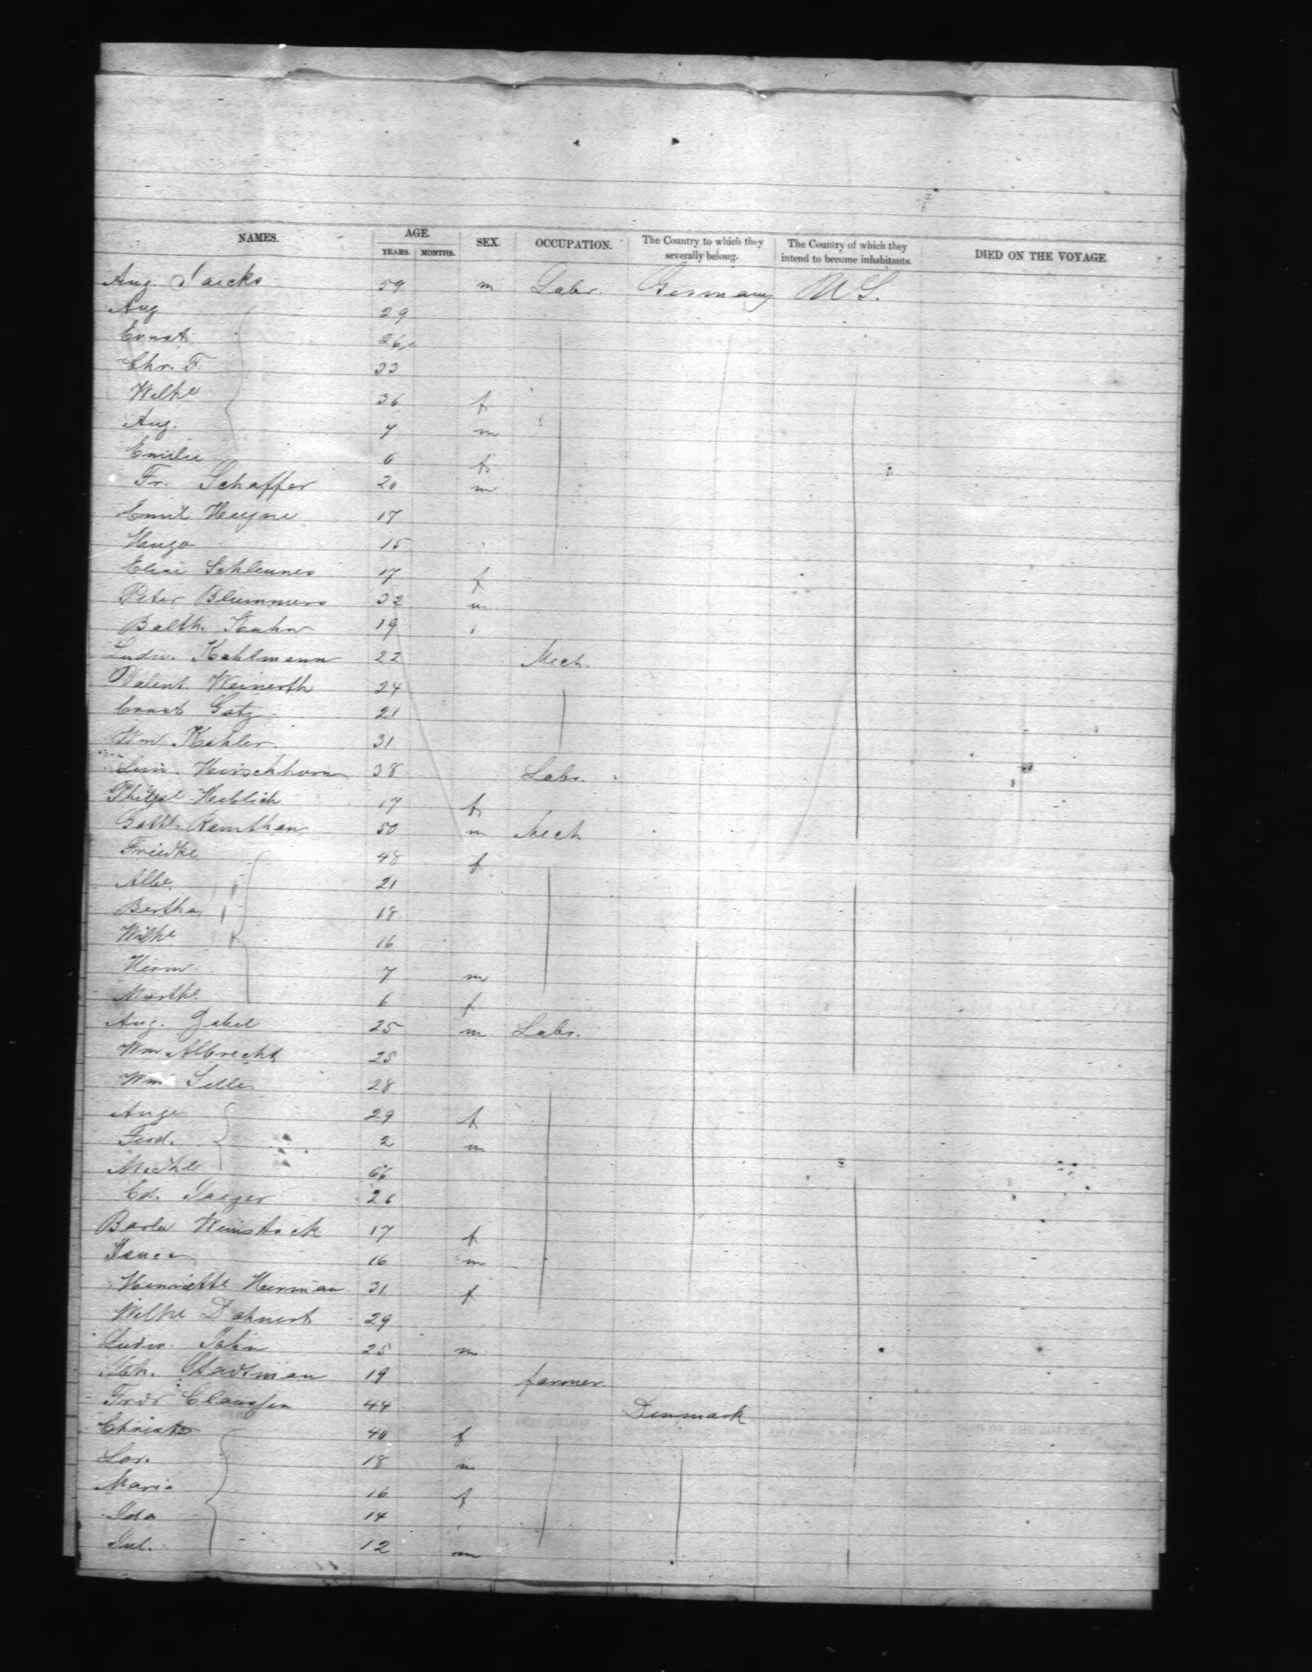 NAMES. AGE. SEX. OCCUPATION. The Country to which they severally belong. The Country of which they intend to become inhabitants. DIED ON THE VOYAGE.
YEARS. MONTHS.
Aug. 59 m Labr. Germany U S.
Aug 29
Ernst 26
Chr. F 33
Wilhe 36 f
Aug. 7 m
Emilie 6 f
Fr. Schaffer 20 m
Emil Heyne 17
Hugo 15
Elise Schleunes 17 f
Peter Blummers 32 m
Balth. Kuhn 19
Ludw. Kahlmann 22 Mech.
Valent. Weinerth 24
Ernst Gotz 21
Wm Kohler. 31
Hirschhorn 38 Labr.
Heblich 17 f
Gottl. Remthan 50 m Mech
Friedke 48 f
Albe. 21
Bertha 18
Wilhe 16
Herm 7 m
Marthe 6 f
Aug. Gabel 25 m Labr.
Wm Albrecht 25
Wm Selle 28
Auge 29 f
Ferd. 2 m
66
Ed. Jaeger 26
Weinstock 17 f
16 m
Henriette Herman 31 f
Wilhe Dahnert 29
Ludw. John 25 m
Joh. Stadtman 19 farmer
Fredr Claussen 44 Denmark
Christe 40 f
Lor. 18 m
Maria 16 f
Ida 14
Jul. 12 m